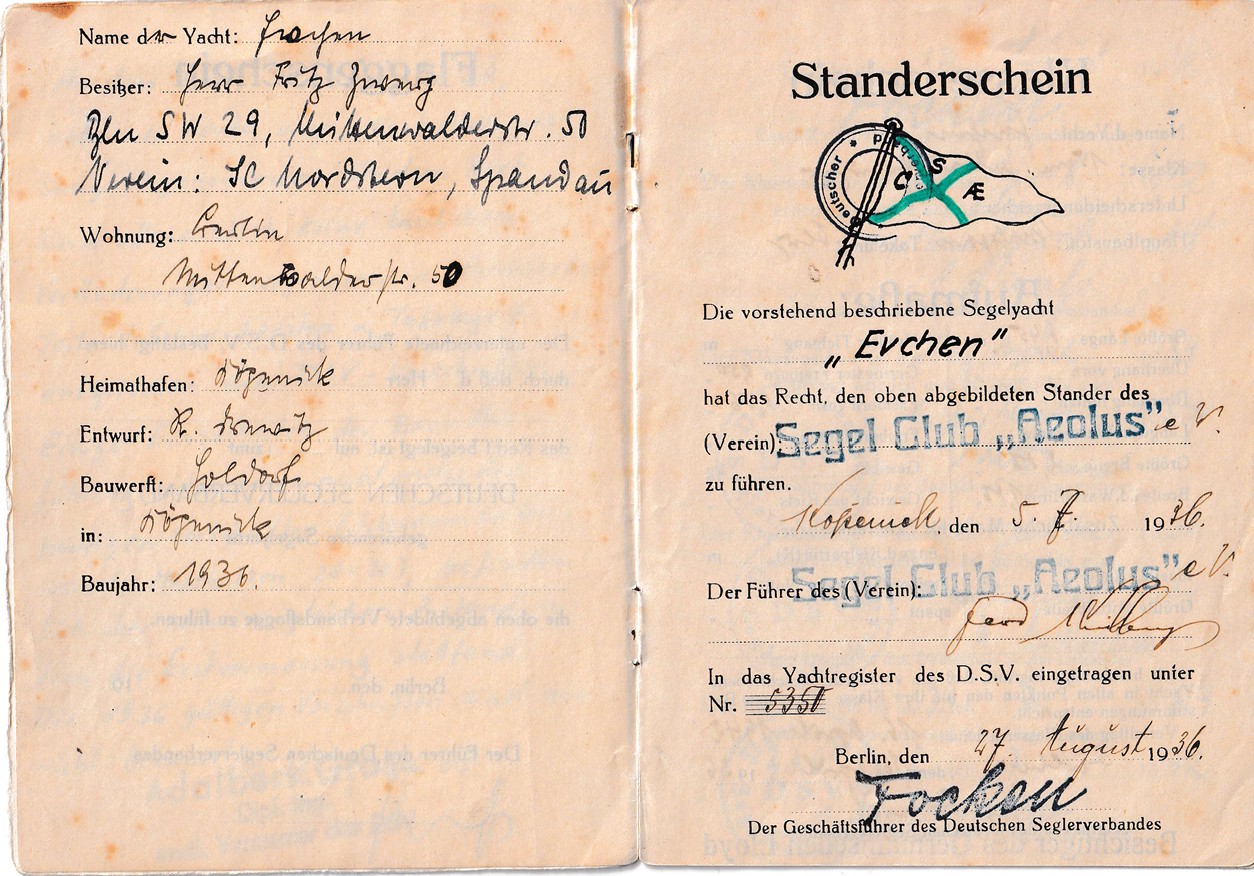 Name der Yacht: Evchen
Besitzer: Herr Fritz Zwerg
Bln SW 29, Mittenwalderstr. 50
Verein: SC Nordstern, Spandau
Wohnung: Berlin
Mittenwalderstr. 50
Heimathafen: Köpenick
Entwurf: R. Drewitz
Bauwerft:
in: Köpenick
Baujahr: 1936.
Standerschein
Deutscher
S
C
Æ
Die vorstehend beschriebene Segelyacht
„Evchen"
hat das Recht, den oben abgebildeten Stander des
(Verein) Segel Club „Aeolus" e V.
zu führen.
Köpenick, den 5. 7. 1936.
Der Führer des (Verein): Segel Club „Aeolus" e V.
In das Yachtregister des D.S.V. eingetragen unter
Nr. 5350
Berlin, den 27 August 1936.
Focken
Der Geschäftsführer des Deutschen Seglerverbandes